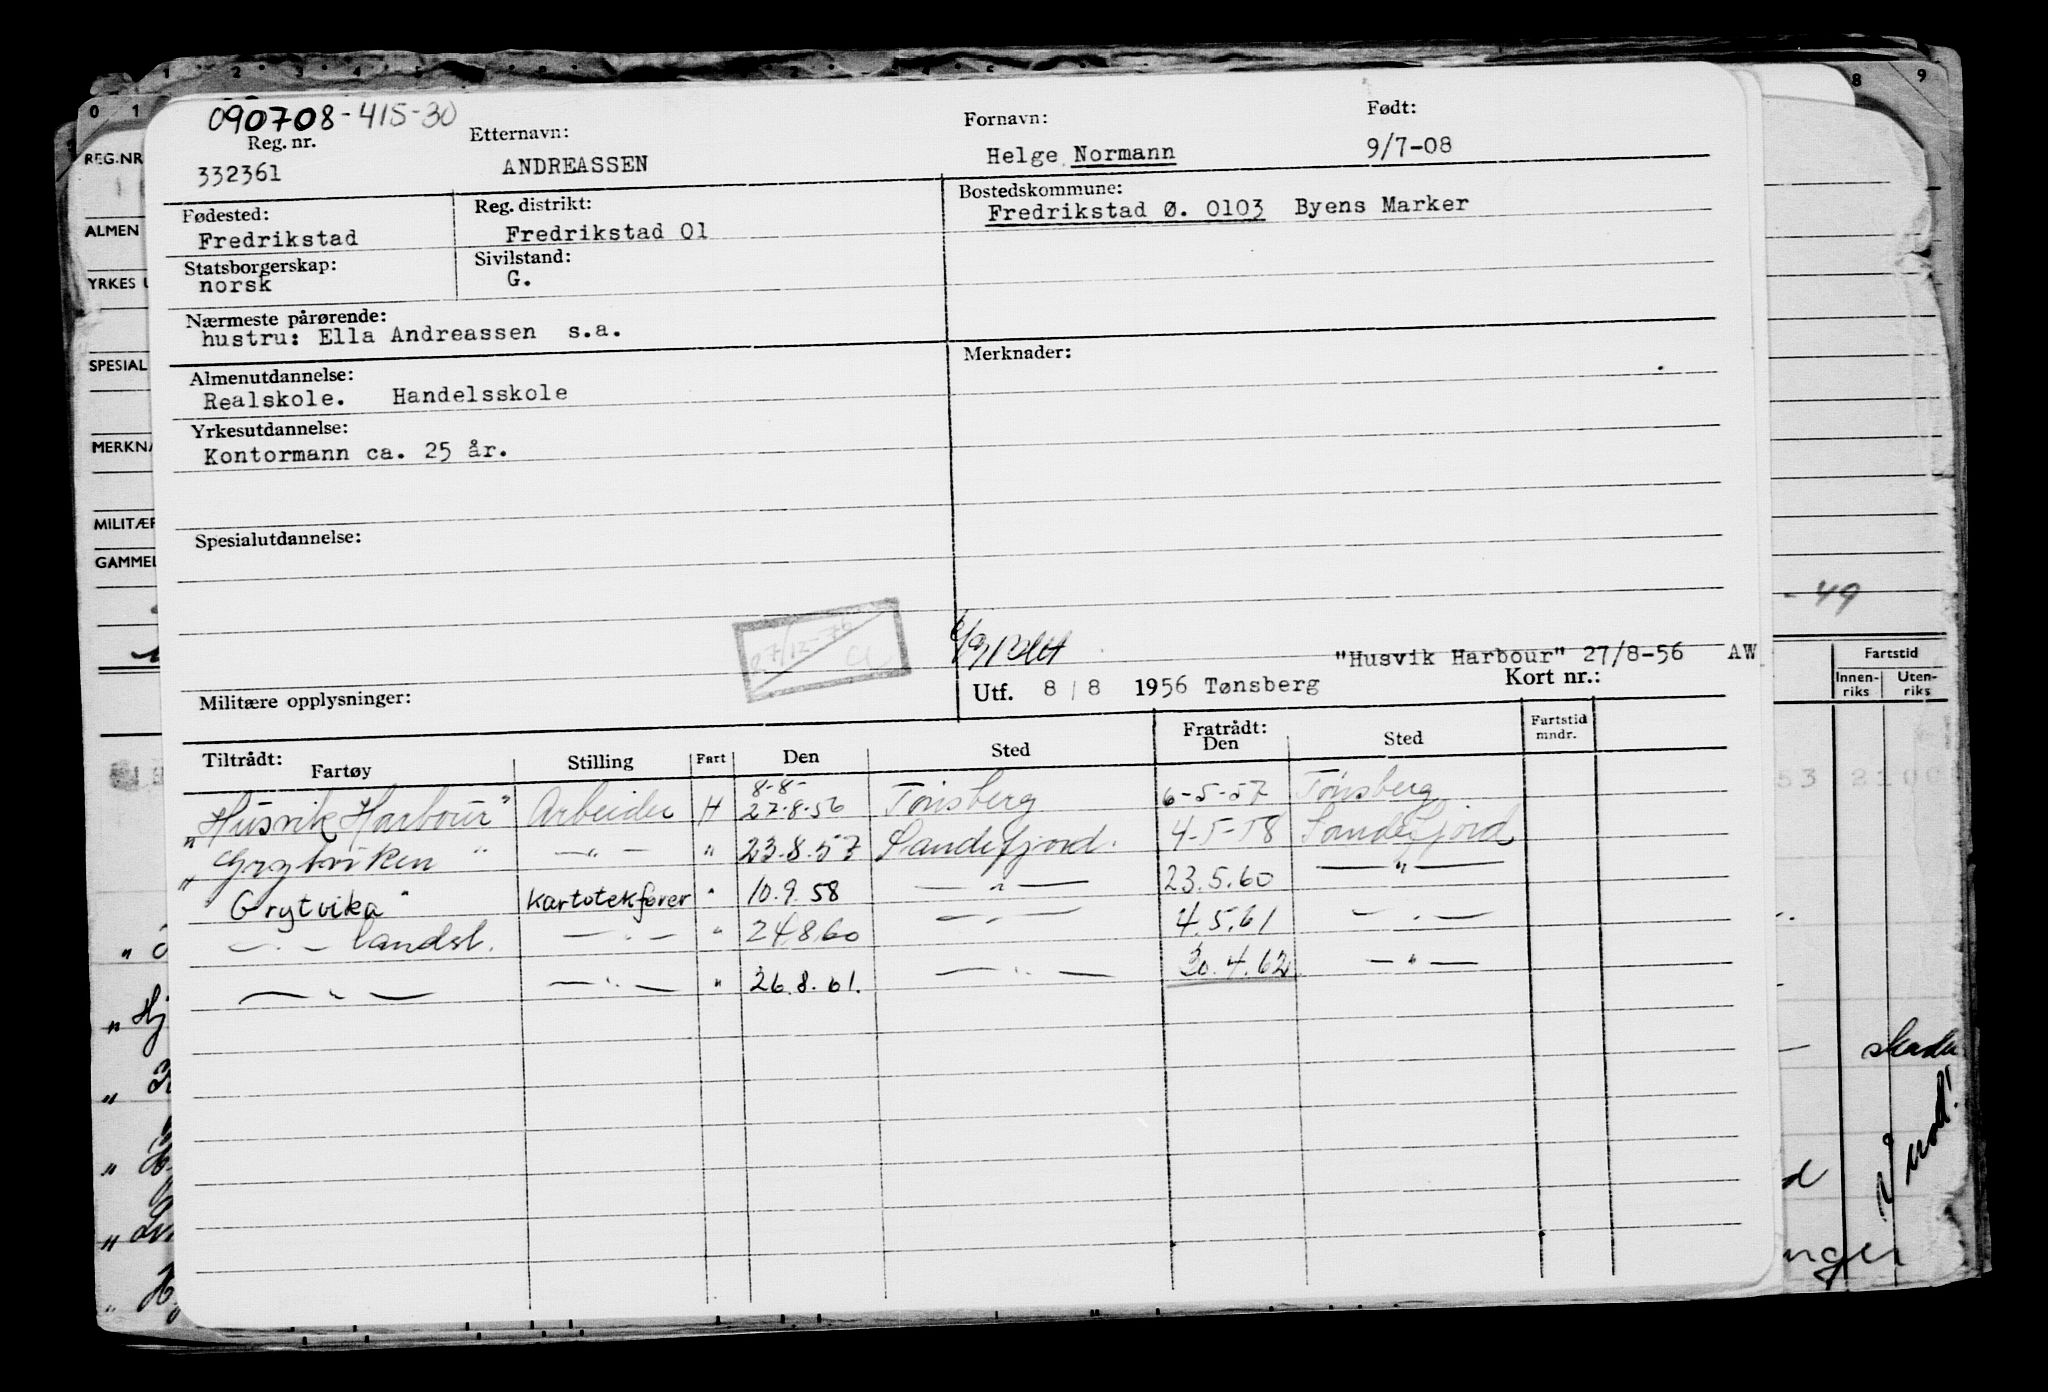 090708-415-30
Reg. nr. Etternavn: Fornavn: Født:
332361 ANDREASSEN Helge Normann 9/7-08
Fødested: Reg. distrikt: Bostedskommune:
Fredrikstad Fredrikstad 01 Fredrikstad Ø. 0103 Byens Marker
Statsborgerskap: Sivilstand:
norsk G.
Nærmeste pårørende:
hustru: Ella Andreassen s.a.
Almenutdannelse: Merknader:
Realskole. Handelsskole
Yrkesutdannelse:
Kontormann ca. 25 år.
Spesialutdannelse:
27/12-
"Husvik Harbour" 27/8-56 AW
Militære opplysninger: Utf. 8/8 1956 Tønsberg Kort nr.:
Tiltrådt: Fratrådt:
Fartøy Stilling Fart Den Sted Den Sted Fartstid mndr.
8-8-
"Husvik Harbour" Arbeider H 27.8.56 Tønsberg 6-5-57 Tønsberg
"Grytviken" —"— " 23.8.57 Sandefjord. 4-5-58 Sandefjord
Grytvika " Kartotekfører " 10.9.58 —"— 23.5.60 —"—
—"— landst. —"— " 24.8.60 —"— 4.5.61 —"—
—"— —"— " 26.8.61. —"— 30.4.62 —"—
REG.NR
ALMEN
YRKES U
SPESIAL
MERKNA
MILITÆR
GAMMEL
- 49
Fartstid
Innen-riks Uten-riks
53 2100